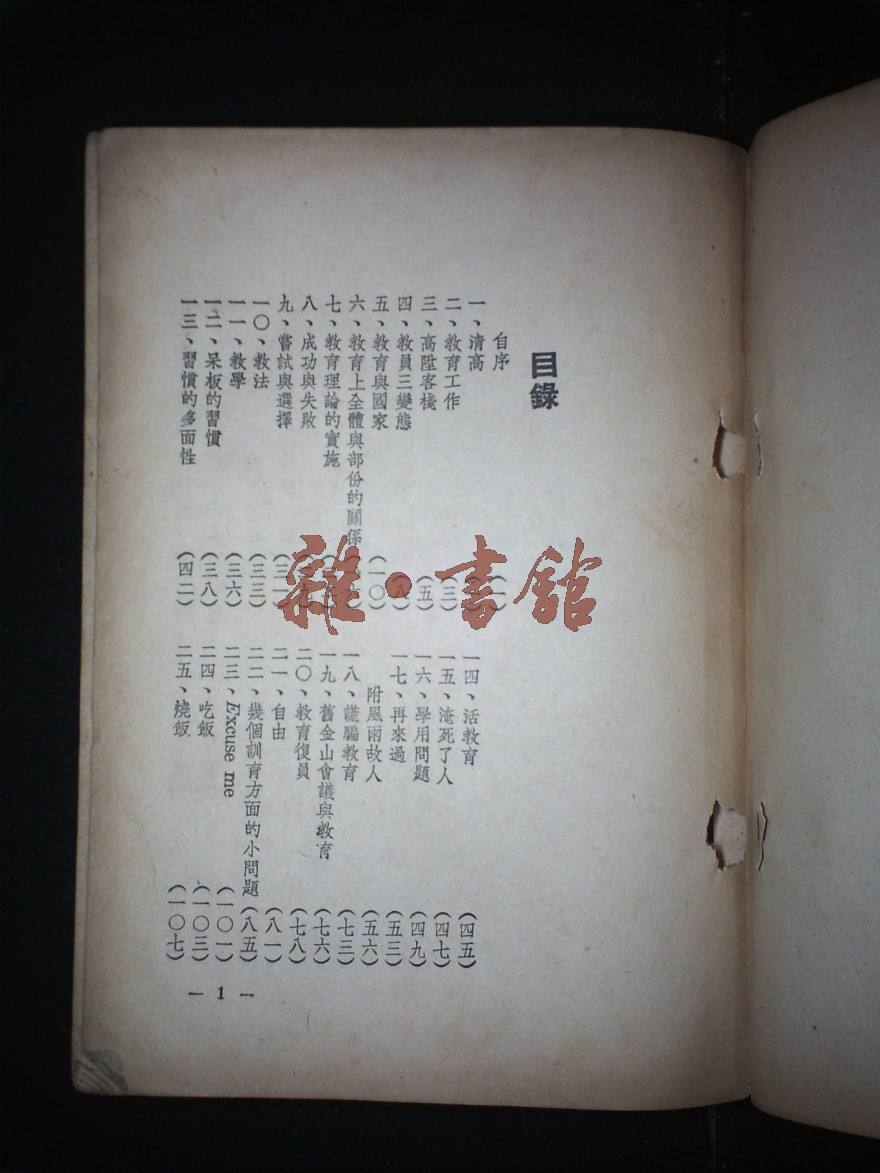 目錄
自序
一、清高
二、教育工作（三）
三、高陞客棧（五）
四、教員三變態（八）
五、教育與國家（一〇）
六、教育上全體與部份的關係
七、教育理論的實施
八、成功與失敗
九、嘗試與選擇（三一）
一〇、教法（三三）
一一、教學（三六）
一二、呆板的習慣（三八）
一三、習慣的多面性（四二）
一四、活教育（四五）
一五、淹死了人（四七）
一六、學用問題（四九）
一七、再來過（五三）
附風雨故人（五六）
一八、謊騙教育（七三）
一九、舊金山會議與教育（七六）
二〇、教育復員（七八）
二一、自由（八一）
二二、幾個訓育方面的小問題（八五）
二三、Excuse me（一〇一）
二四、吃飯（一〇三）
二五、燒飯（一〇七）
— 1 —
雜·書館